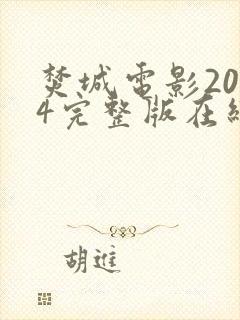 焚城電影20
4完整版在
胡進